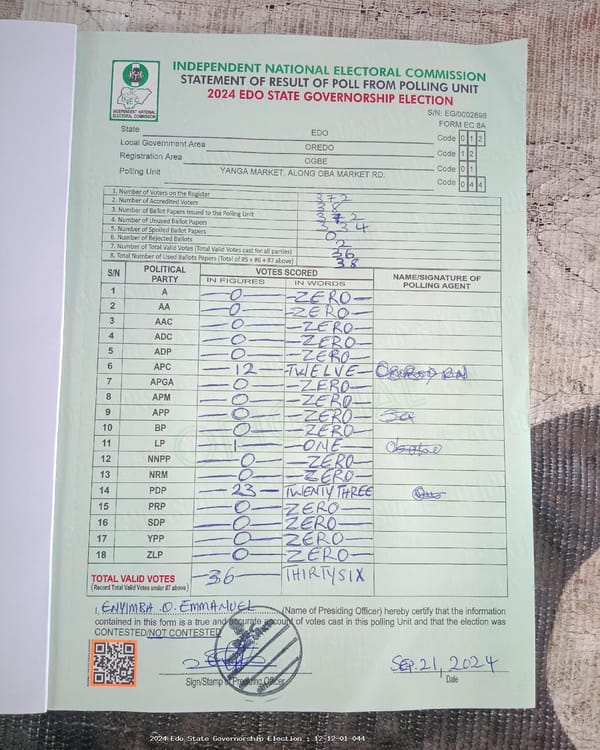 INDEPENDENT NATIONAL ELECTORAL COMMISSION
STATEMENT OF RESULT OF POLL FROM POLLING UNIT
2024 EDO STATE GOVERNORSHIP ELECTION
INEC
INDEPENDENT NATIONAL ELECTORAL COMMISSION
S/N: EG/0002698
FORM EC 8A
State EDO Code 0 1 2
Local Government Area OREDO Code 1 2
Registration Area OGBE Code 0 1
Polling Unit YANGA MARKET, ALONG OBA MARKET RD. Code 0 4 4
1. Number of Voters on the Register 372
2. Number of Accredited Voters 38
3. Number of Ballot Papers Issued to the Polling Unit 372
4. Number of Unused Ballot Papers 334
5. Number of Spoiled Ballot Papers 0
6. Number of Rejected Ballots 2
7. Number of Total Valid Votes (Total Valid Votes cast for all parties) 36
8. Total Number of Used Ballots Papers (Total of #5 + #6 + #7 above) 38
S/N POLITICAL PARTY VOTES SCORED NAME/SIGNATURE OF POLLING AGENT
IN FIGURES IN WORDS
1 A 0 ZERO
2 AA 0 ZERO
3 AAC 0 ZERO
4 ADC 0 ZERO
5 ADP 0 ZERO
6 APC 12 TWELVE
7 APGA 0 ZERO
8 APM 0 ZERO
9 APP 0 ZERO
10 BP 0 ZERO
11 LP 1 ONE
12 NNPP 0 ZERO
13 NRM 0 ZERO
14 PDP 23 TWENTY THREE
15 PRP 0 ZERO
16 SDP 0 ZERO
17 YPP 0 ZERO
18 ZLP 0 ZERO
TOTAL VALID VOTES 36 THIRTY SIX
(Record Total Valid Votes under #7 above)
I, ENYIMBA O. EMMANUEL (Name of Presiding Officer) hereby certify that the information
contained in this form is a true and accurate account of votes cast in this polling Unit and that the election was
CONTESTED/NOT CONTESTED
SEP. 21, 2024
Sign/Stamp of Presiding Officer Date
2024 Edo State Governorship Election : 12-12-01-044